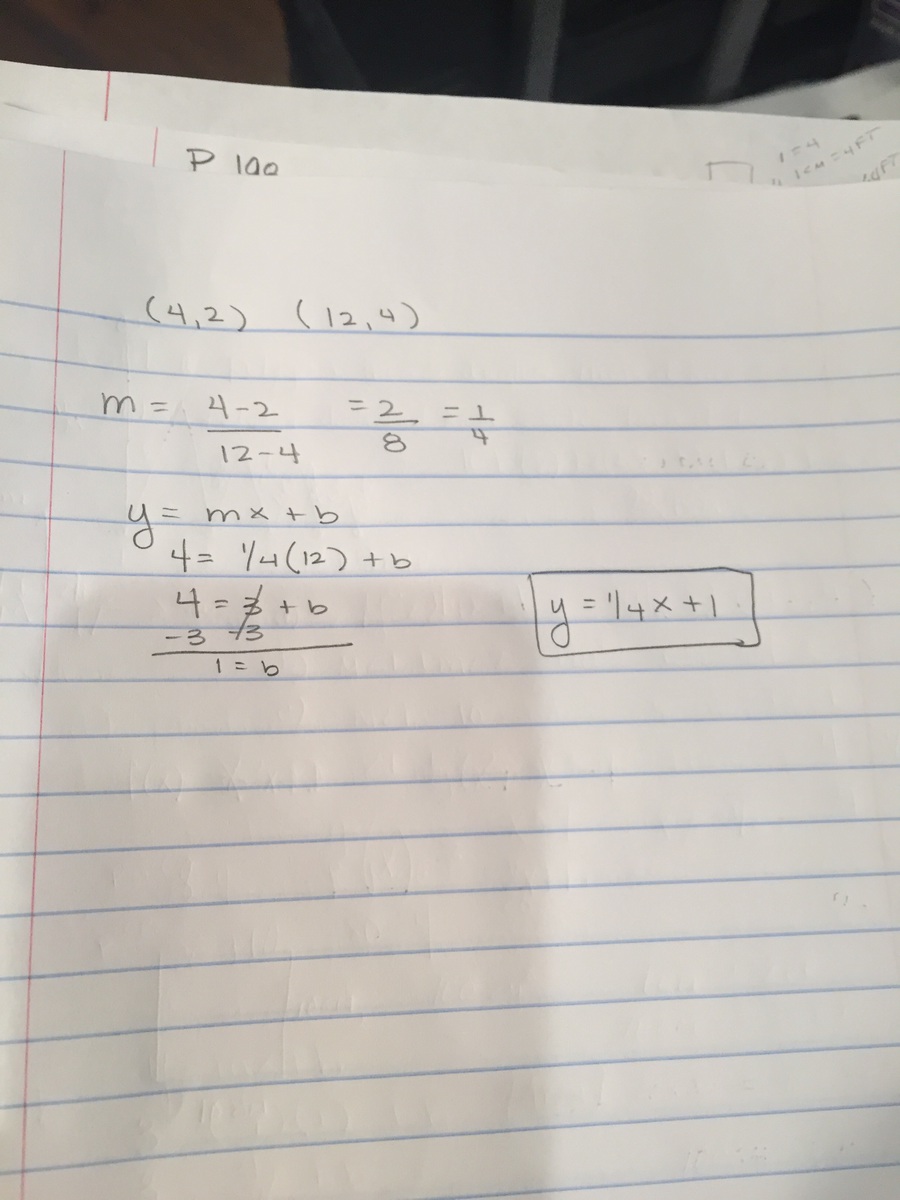 P 100
1=4
1cm=4FT
(4,2) (12,4)
m = 4-2 = 2 = 1
12-4 8 4
y = mx + b
4 = 1/4 (12) + b
4 = 3 + b
-3 -3
1 = b
y = 1/4 x + 1